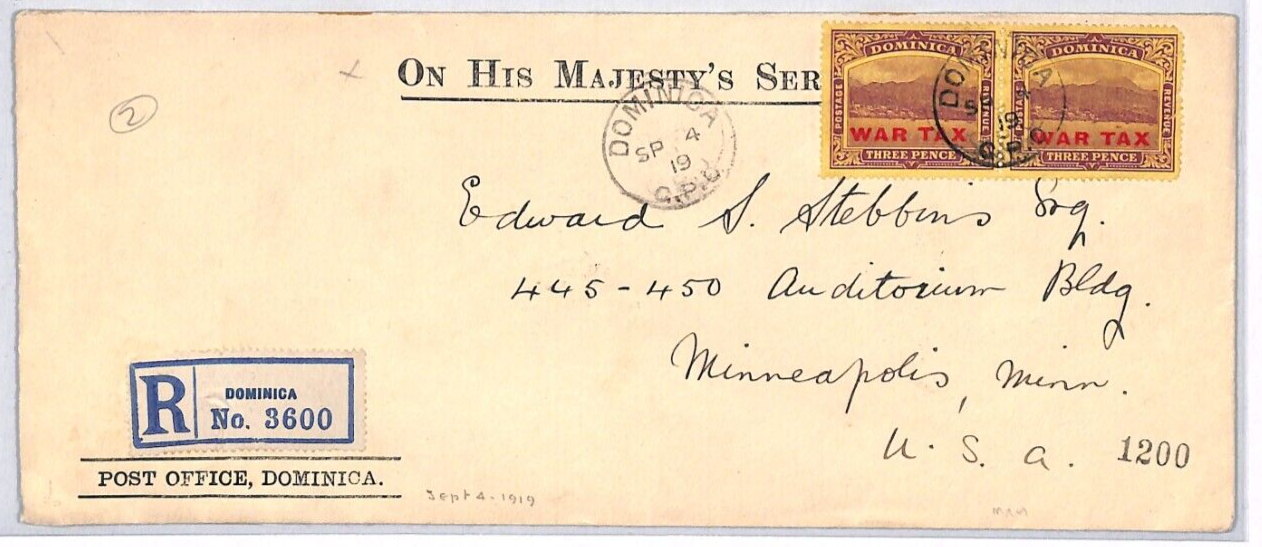 ON HIS MAJESTY'S SER
DOMINICA
POSTAGE
REVENUE
WAR TAX
THREE PENCE
DOMINICA
POSTAGE
REVENUE
WAR TAX
THREE PENCE
DOMINICA
SP 4
19
G.P.O.
DOMINICA
SP 4
19
G.P.O.
2
Edward S. Stebbins Esq.
445-450 Auditorium Bldg.
Minneapolis, Minn.
U. S. A.
1200
R
DOMINICA
No. 3600
POST OFFICE, DOMINICA.
Sept 4-1919